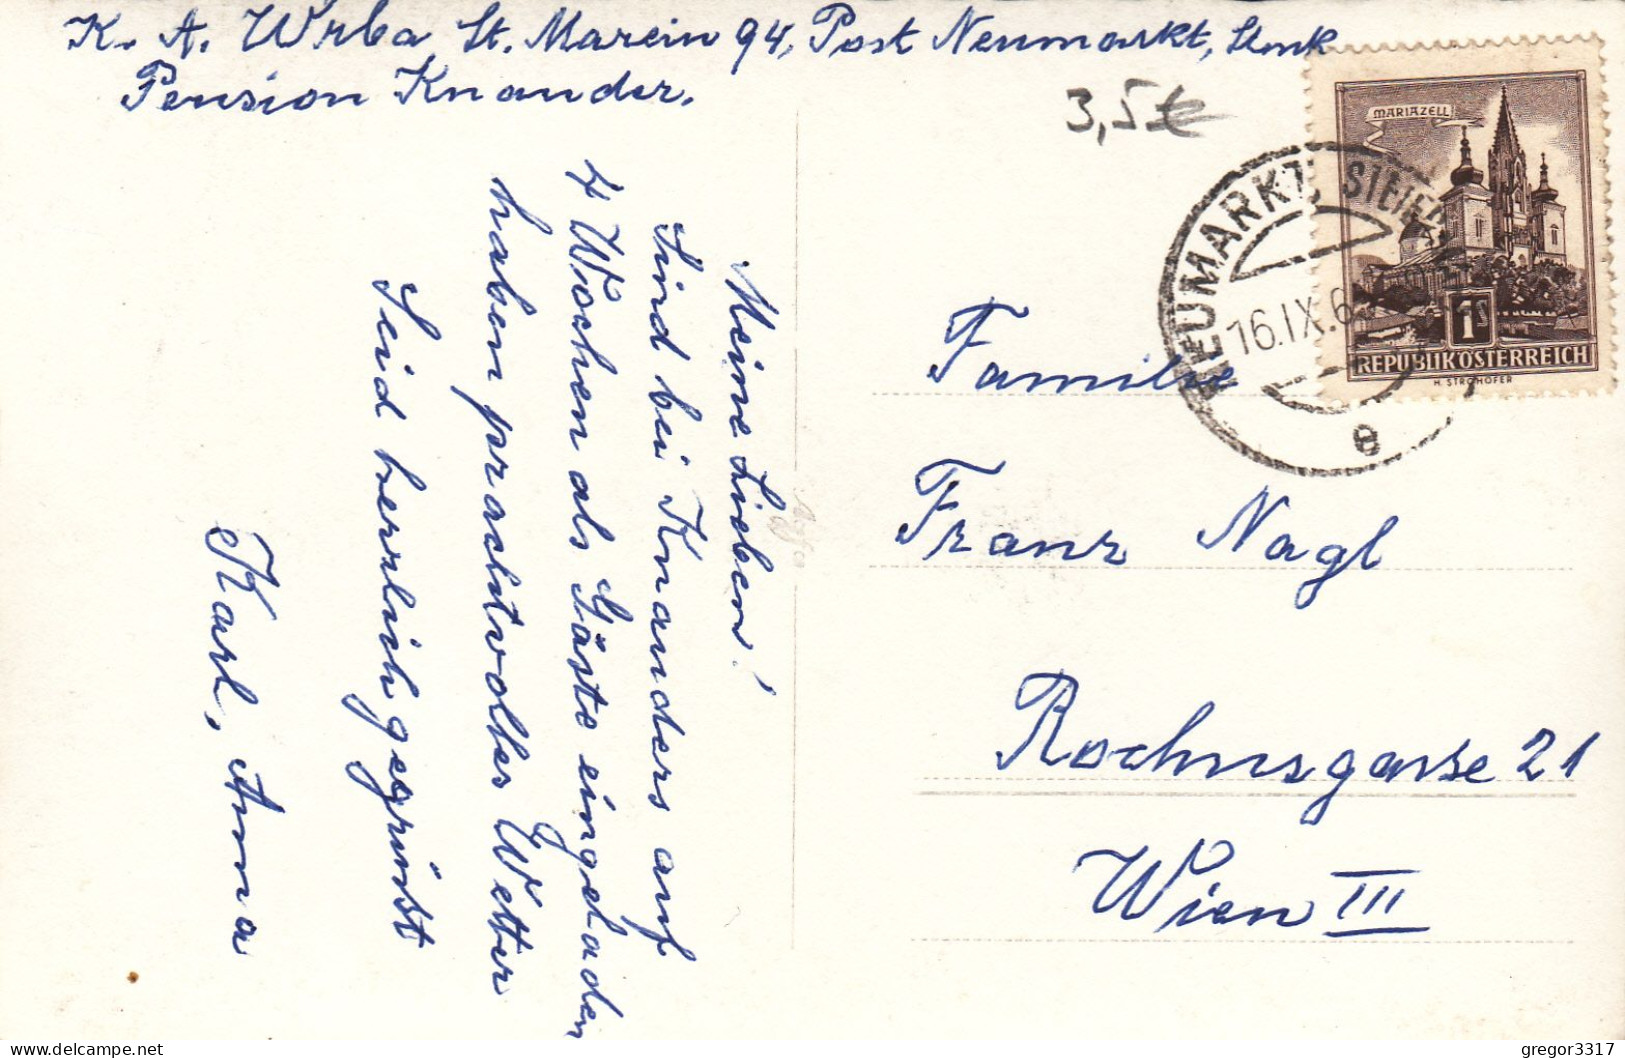 K. A. Wrba St. Marein 94, Post Neumarkt, Stmk
Pension Knander.
3,5 €
MARIAZELL
1S
REPUBLIK ÖSTERREICH
H. STROHOFER
NEUMARKT, STEIERM
16.IX.6
e
Meine Lieben!
Sind bei Knanders auf
4 Wochen als Gäste eingeladen
haben prachtvolles Wetter
Seid herrlich gegrüßt
Karl, Anna
Familie
Franz Nagl
Rochusgasse 21
Wien III
Agfa
gregor3317
© www.delcampe.net